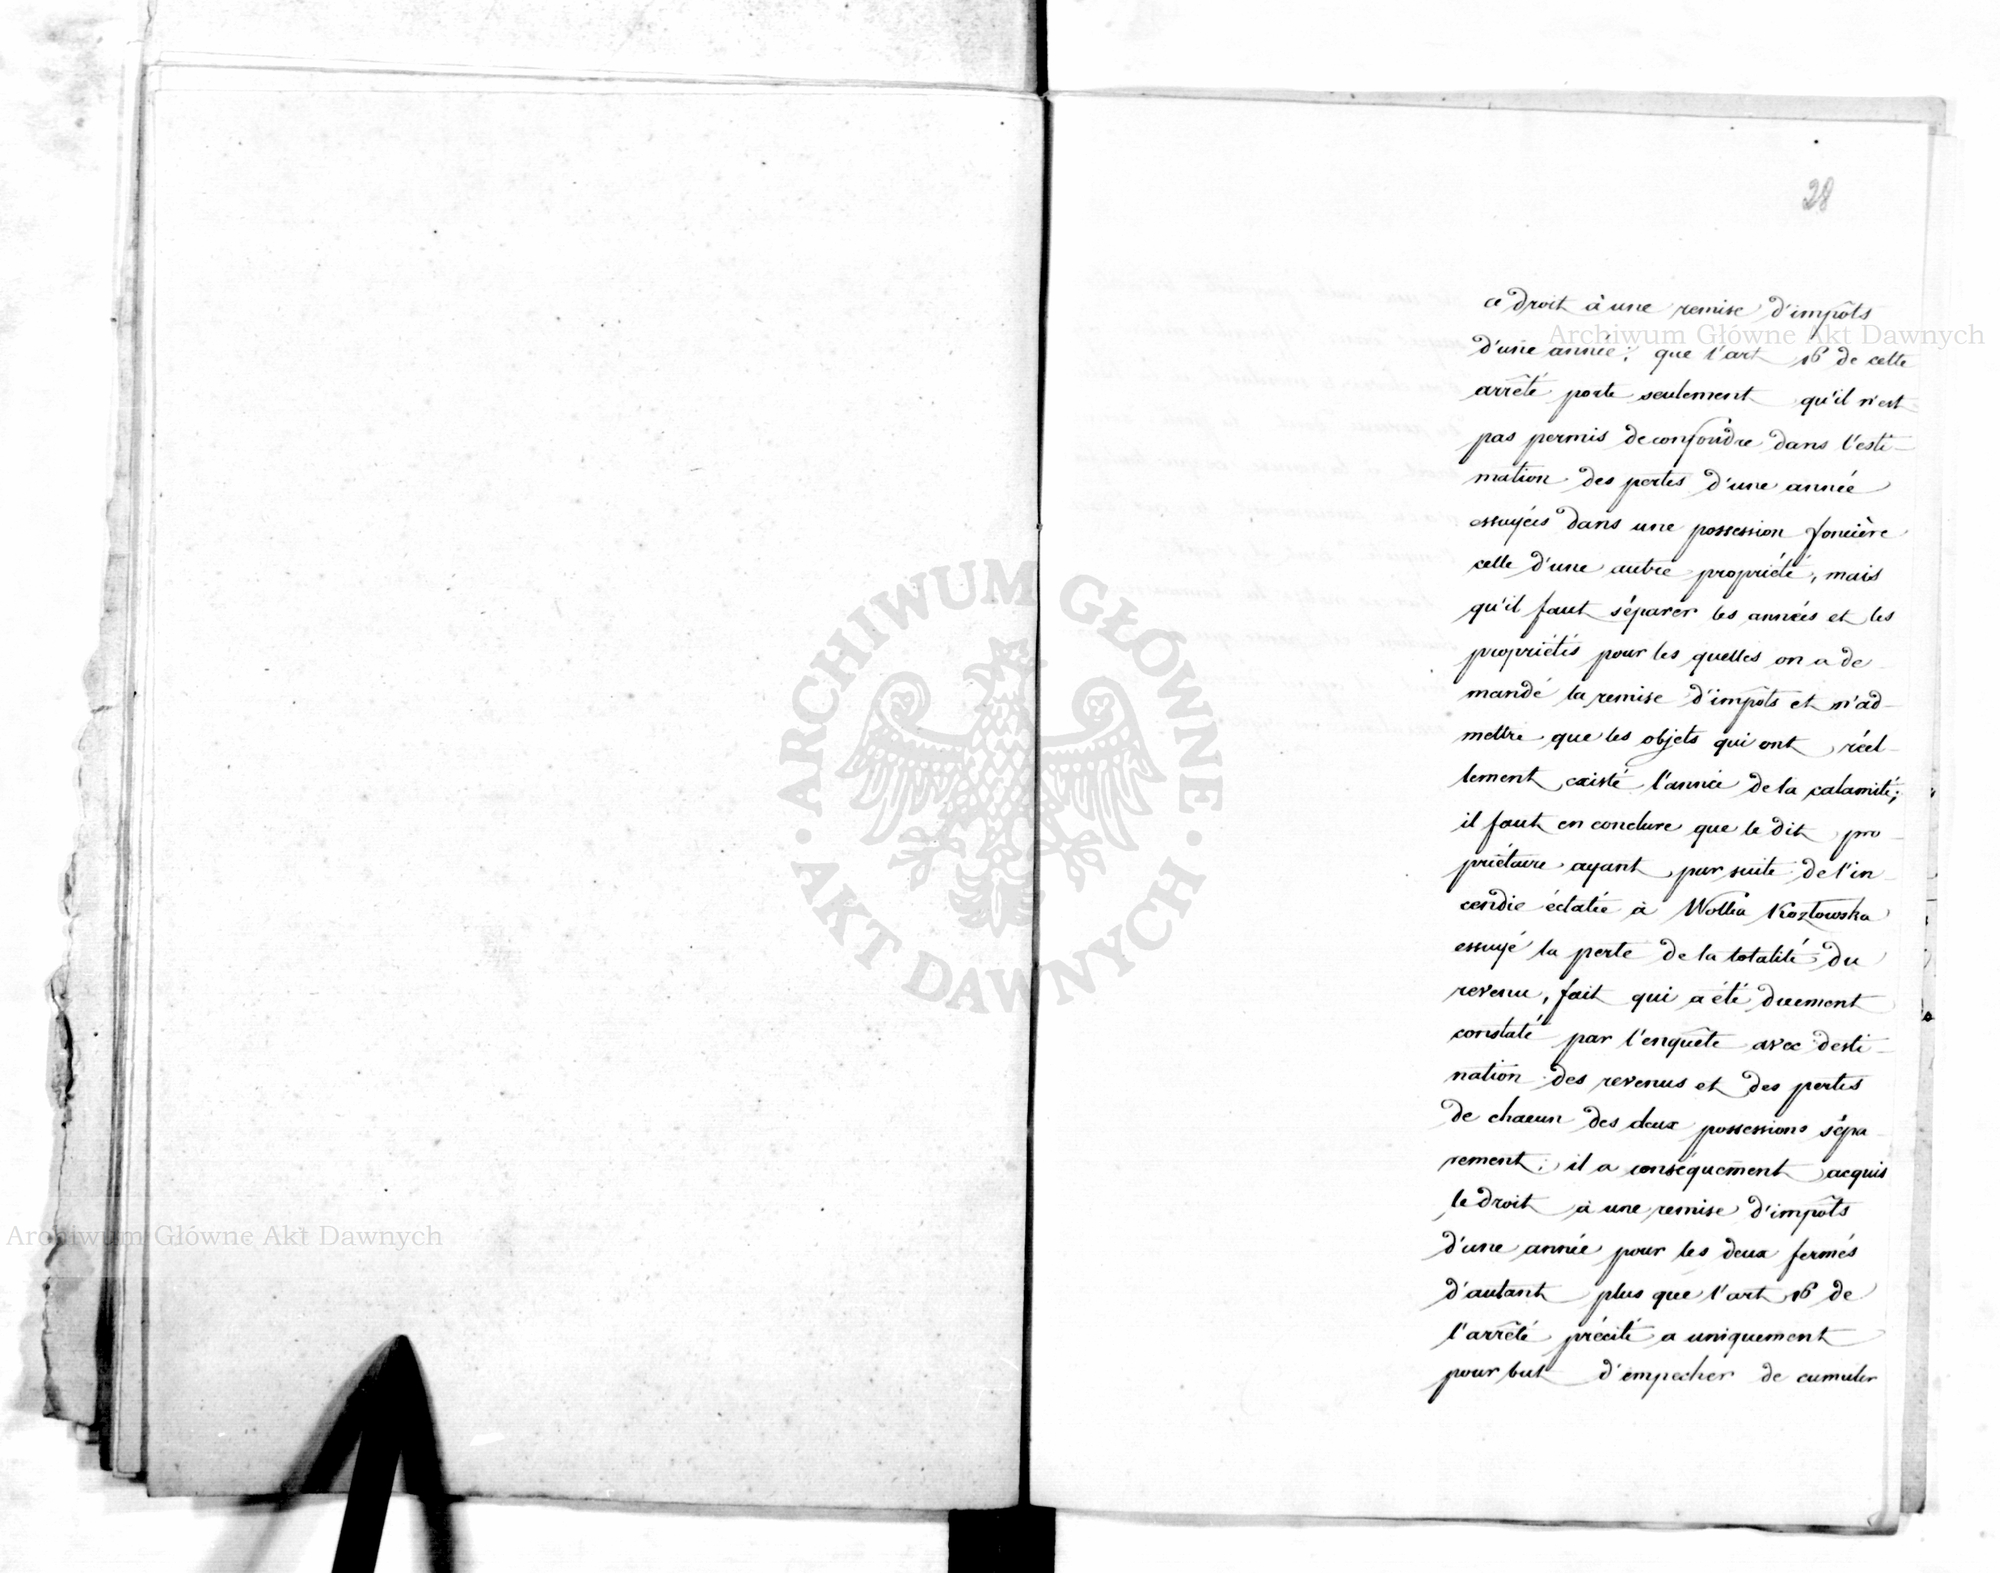 28
ce droit à une remise d'impôts
d'une année; que l'art 16 de cette
arrêté porte seulement qu'il n'est
pas permis de confondre dans l'esti-
mation des pertes d'une année
essuyées dans une possession foncière
celle d'une autre propriété, mais
qu'il faut séparer les années et les
propriétés pour les quelles on a de-
mandé la remise d'impôts et n'ad-
mettre que les objets qui ont réel-
lement existé l'année de la calamité;
il faut en conclure que le dit pro-
priétaire ayant par suite de l'in-
cendie éclatée à Wolka Kozłowska
essuyé la perte de la totalité du
revenu, fait qui a été duement
constaté par l'enquête avec desti-
nation des revenus et des pertes
de chacun des deux possessions sépa-
rement; il a conséquemment acquis
le droit à une remise d'impôts
d'une année pour les deux fermés
d'autant plus que l'art 16 de
l'arrêté précité a uniquement
pour but d'empecher de cumuler
Archiwum Główne Akt Dawnych
Archiwum Główne Akt Dawnych
ARCHIWUM GŁÓWNE · AKT DAWNYCH ·